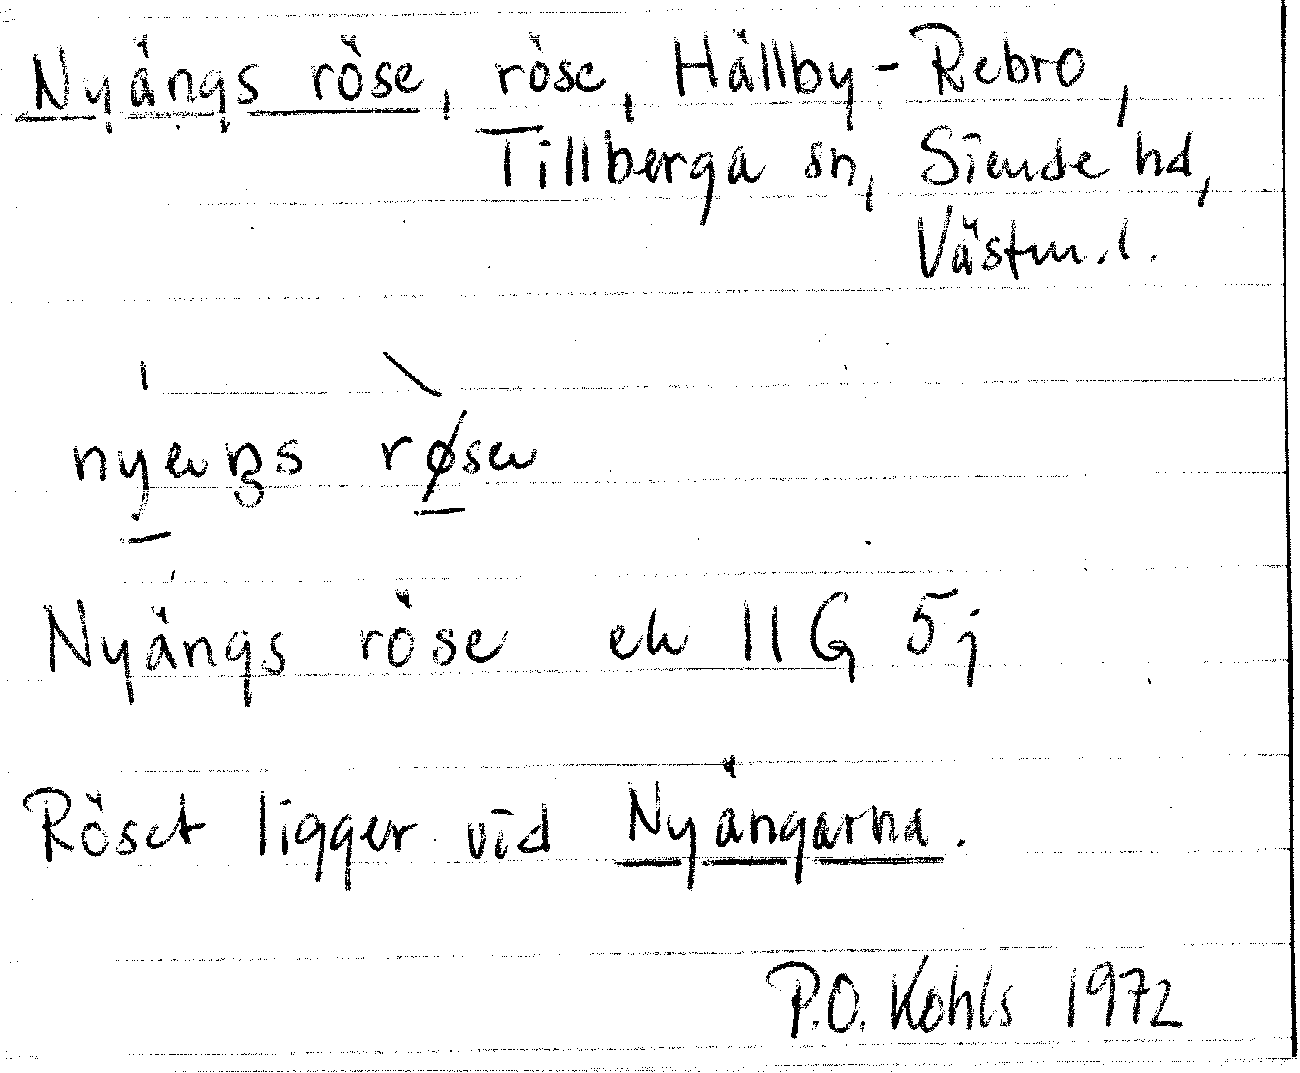 Nyängs röse, röse, Hällby-Rebro,
Tillberga sn, Siende hd,
Västm.l.
Nyängs röse ek 11G 5j
Röset ligger vid Nyängarna.
P.O. Kohls 1972